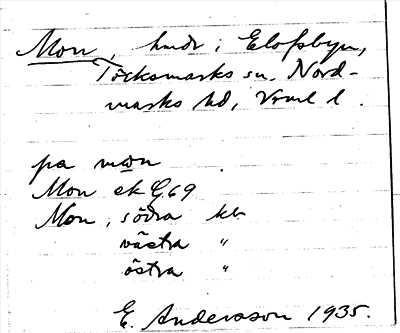 Mon, hmdr i Elofsbyn,
Töcksmarks sn, Nord-
marks hd, Vrml l.
på mon
Mon ek G,69
Mon, södra kb
västra "
östra "
E. Andersson 1935.